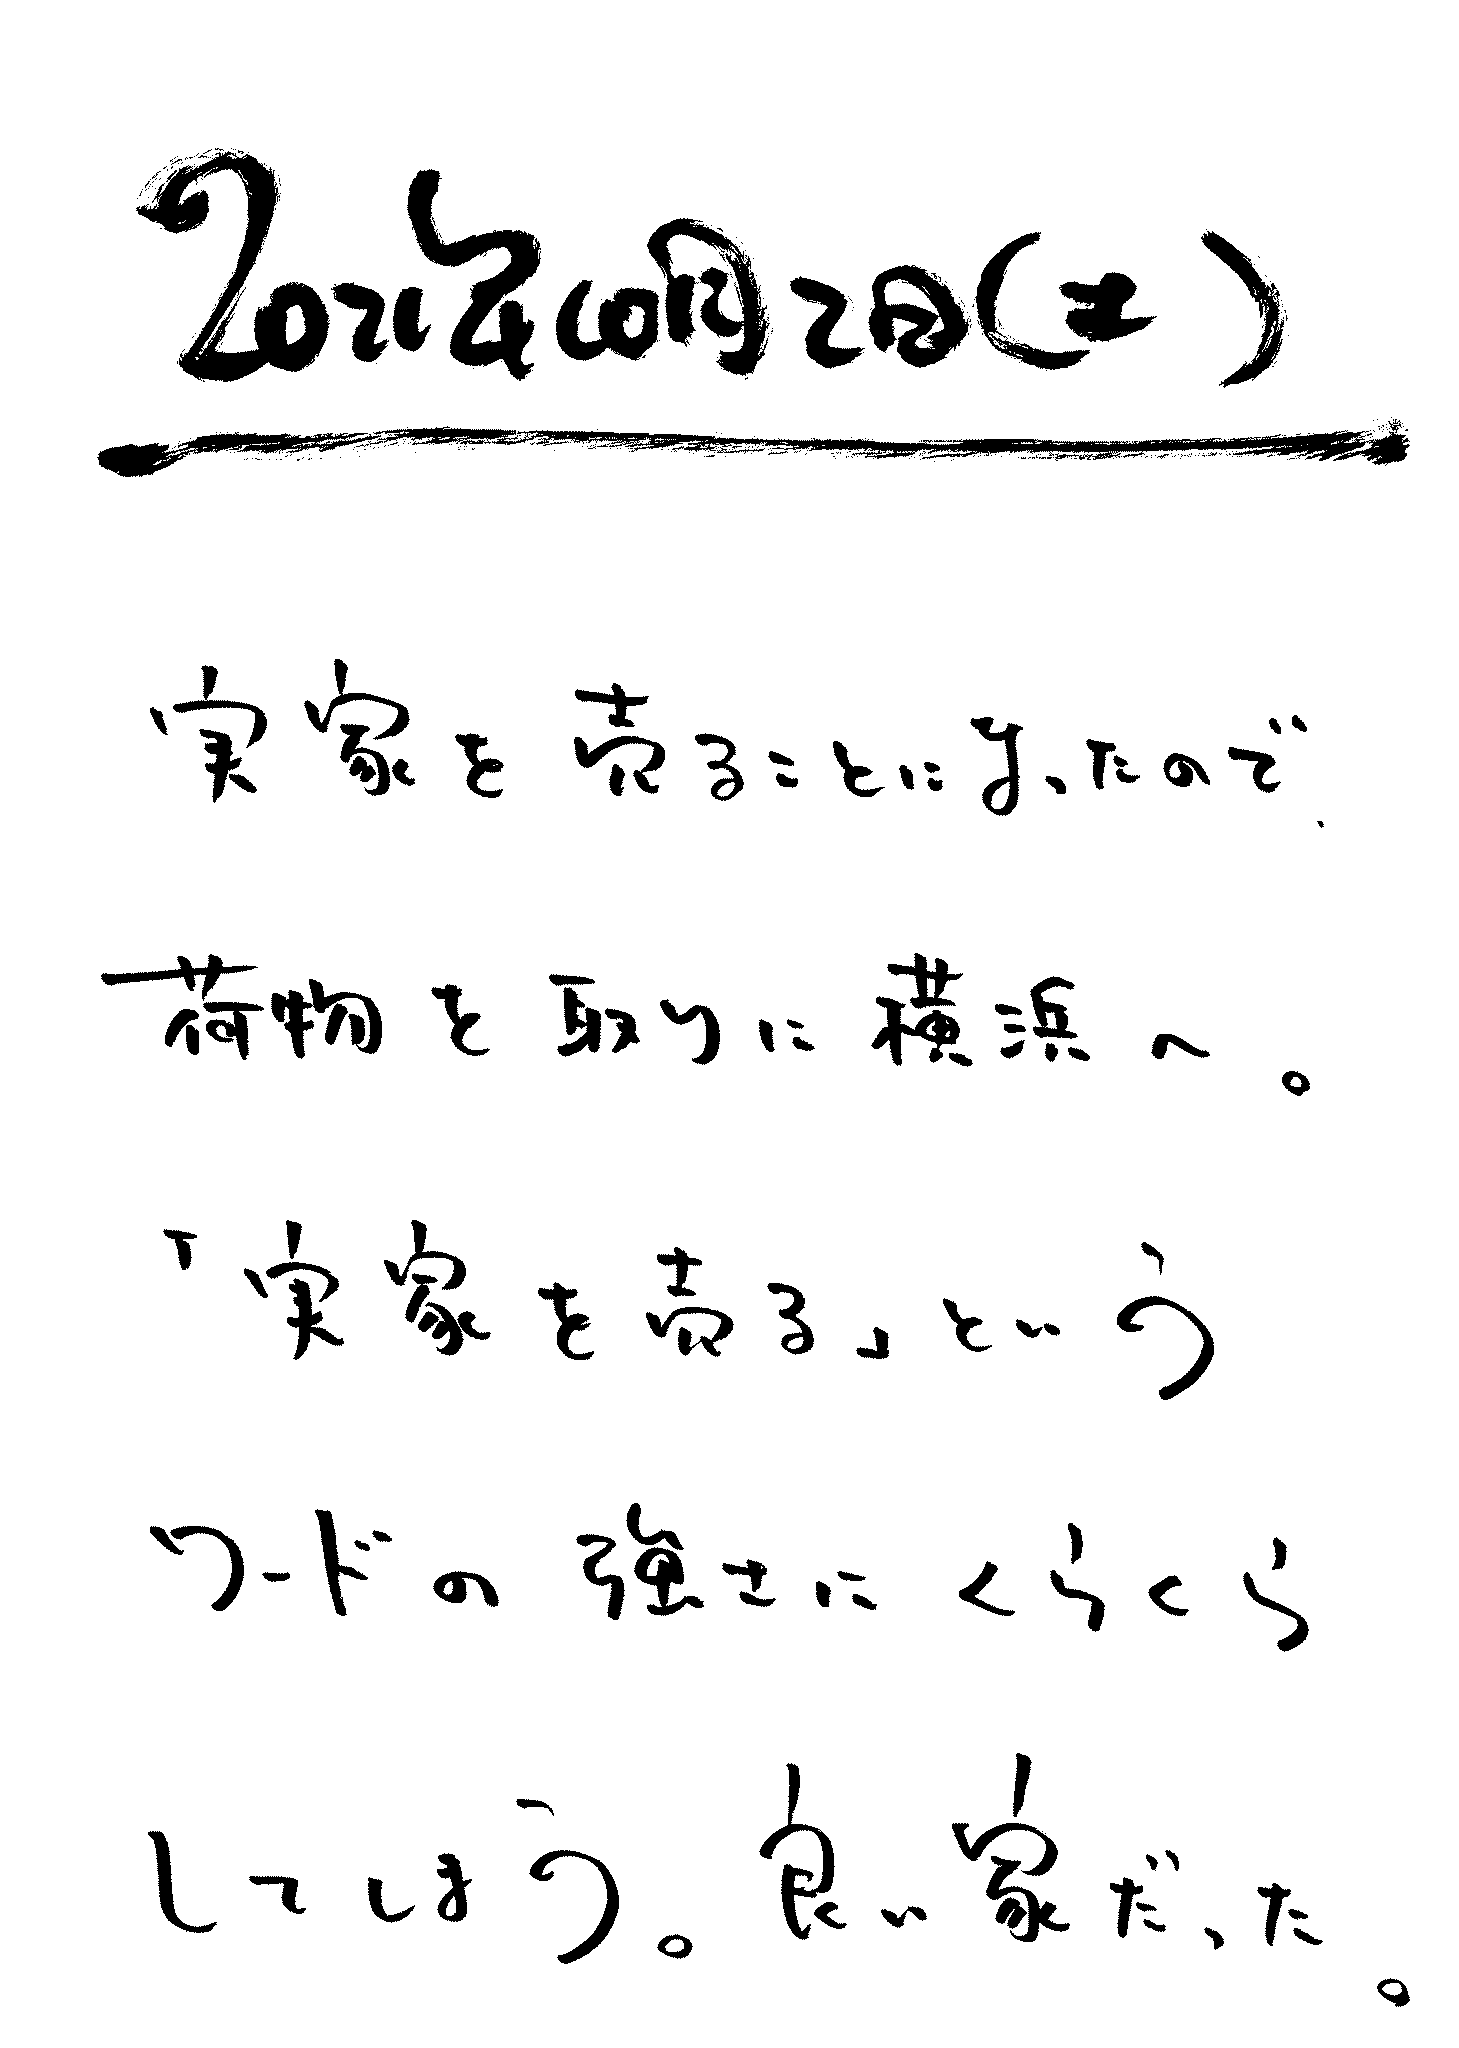 2021年10月2日(土)
実家を売ることになったので、
荷物を取りに横浜へ。
「実家を売る」という
ワードの強さにくらくら
してしまう。良い家だった。